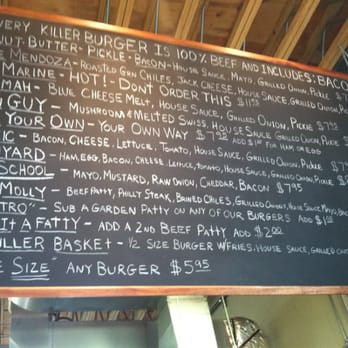 VERY KILLER BURGER IS 100% BEEF AND INCLUDES: BACO
NUT-BUTTER-PICKLE-BACON-HOUSE SAUCE, MAYO, GRILLED ONION, PICKLE
E MENDOZA-ROASTED GRN CHILES, JACK CHEESE, HOUSE SAUCE, GRILLED ONION
MARINE-HOT! DON'T ORDER THIS $11.95
MAH-BLUE CHEESE MELT, HOUSE SAUCE, GRILLED ONION, PICKLE $7.
GUY-MUSHROOM & MELTED SWISS, HOUSE SAUCE, GRILLED ONION, PICKLE
YOUR OWN-YOUR OWN WAY $7.95 ADD $1 FOR HAM OR EGG
IC-BACON, CHEESE, LETTUCE, TOMATO, HOUSE SAUCE, GRILLED ONION, PICKLE
YARD-HAM, EGG, BACON, CHEESE, LETTUCE, TOMATO, HOUSE SAUCE, GRILLED ONION
SCHOOL-MAYO, MUSTARD, RAW ONION, CHEDDAR, BACON $7.95
MOLLY-BEEF PATTY, PHILLY STEAK, CHILES, GRILLED ONIONS, HOUSE SAUCE, MAYO
TRO"-SUB A GARDEN PATTY ON ANY OF OUR BURGERS ADD $1
IT A FATTY-ADD A 2ND BEEF PATTY ADD $2.00
ILLER BASKET-1/2 SIZE BURGER W/FRIES, HOUSE SAUCE, GRILLED ONI
E SIZE" ANY BURGER $5.95